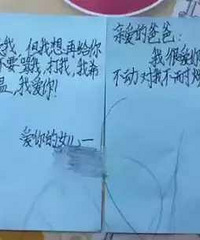 我，但我想再给你
不要骂我，打我，我希
温，我爱你！
爱你的女儿一
亲爱的爸爸：
我很爱你
不动对我不耐烦